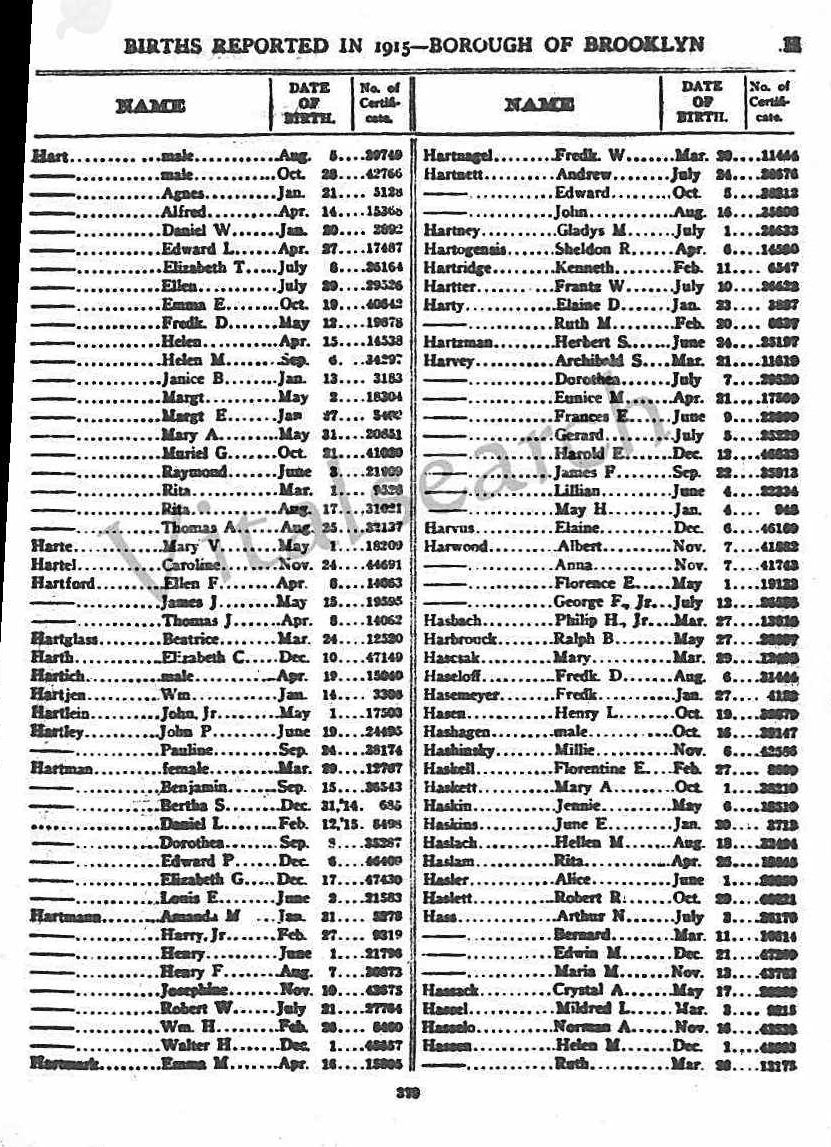 BIRTHS REPORTED IN 1915—BOROUGH OF BROOKLYN
NAME
DATE OF BIRTH.
No. of Certifi- cate.
Hart ... male ... Aug. 5 ... 20749
—— ... male ... Oct. 28 ... 42766
—— ... Agnes ... Jan. 21 ... 5128
—— ... Alfred ... Apr. 14 ... 15368
—— ... Daniel W ... Jan. 20 ... 2692
—— ... Edward L ... Apr. 27 ... 17487
—— ... Elizabeth T ... July 8 ... 26164
—— ... Ellen ... July 29 ... 29526
—— ... Emma E ... Oct. 19 ... 40642
—— ... Fredk. D ... May 12 ... 19678
—— ... Helen ... Apr. 15 ... 14538
—— ... Helen M ... Sep. 6 ... 34297
—— ... Janice B ... Jan. 13 ... 3183
—— ... Margt ... May 2 ... 18304
—— ... Margt E ... Jan 27
—— ... Mary A ... May 31 ... 20651
—— ... Muriel G ... Oct. 21
—— ... Raymond ... June 3 ... 21909
—— ... Rita ... Mar. 1
—— ... Rita ... Aug. 17 ... 31021
—— ... Thomas A ... Aug. 25 ... 32137
Harte ... Mary V ... May 1 ... 18209
Hartel ... Caroline ... Nov. 24 ... 44691
Hartford ... Ellen F ... Apr. 8 ... 14063
—— ... James J ... May 15 ... 19595
—— ... Thomas J ... Apr. 8 ... 14062
Hartglass ... Beatrice ... Mar. 24 ... 12520
Harth ... Elizabeth C ... Dec. 10 ... 47149
Hartich ... male ... Apr. 19
Hartjen ... Wm ... Jan. 14
Hartlein ... John, Jr ... May 1 ... 17503
Hartley ... John P ... June 19 ... 24495
—— ... Pauline ... Sep. 24 ... 38174
Hartman ... female ... Mar. 29 ... 12767
—— ... Benjamin ... Sep. 15 ... 36543
—— ... Bertha S ... Dec. 31,'14. 685
... Daniel L ... Feb. 12,'15. 8498
—— ... Dorothea ... Sep. ... 35287
—— ... Edward P ... Dec. 6 ... 46409
—— ... Elizabeth G ... Dec. 17 ... 47430
—— ... Louis E ... June 2 ... 21583
Hartmann ... Amanda M ... Jan. 31
—— ... Harry, Jr ... Feb. 27 ... 9319
—— ... Henry ... June 1 ... 21796
—— ... Henry F ... Aug. 7 ... 30873
—— ... Josephine ... Nov. 10
—— ... Robert W ... July 21 ... 27764
—— ... Wm. H ... Feb.
—— ... Walter H ... Dec. 1
Hartmark ... Emma M ... Apr. 16
NAME
DATE OF BIRTH.
No. of Certifi- cate.
Hartnagel ... Fredk. W ... Mar.
Hartnett ... Andrew ... July 24
—— ... Edward ... Oct. 5
—— ... John ... Aug. 16
Hartney ... Gladys M ... July 1
Hartogensis ... Sheldon R ... Apr. 6
Hartridge ... Kenneth ... Feb. 11 ... 6547
Hartter ... Frantz W ... July 10
Harty ... Elaine D ... Jan. 23
—— ... Ruth M ... Feb. 20
Hartzman ... Herbert S ... June 24 ... 25197
Harvey ... Archibald S ... Mar. 21 ... 11619
—— ... Dorothea ... July 7
—— ... Eunice M ... Apr. 21
—— ... Frances E ... June 9
—— ... Gerard ... July 5
—— ... Harold E ... Dec. 12
—— ... James F ... Sep. 22
—— ... Lillian ... June 4
—— ... May H ... Jan. 4
Harvus ... Elaine ... Dec. 6 ... 46169
Harwood ... Albert ... Nov. 7
—— ... Anna ... Nov. 7 ... 41743
—— ... Florence E ... May 1 ... 19123
—— ... George F., Jr ... July 13
Hasbach ... Philip H., Jr ... Mar. 27
Harbrouck ... Ralph B ... May 27
Hascsak ... Mary ... Mar.
Haseloff ... Fredk. D ... Aug. 6
Hasemeyer ... Fredk ... Jan. 27
Hasen ... Henry L ... Oct. 19
Hashagen ... male ... Oct. 16
Hashinsky ... Millie ... Nov. 6 ... 42566
Haskell ... Florentine E ... Feb. 27
Haskett ... Mary A ... Oct. 1
Haskin ... Jennie ... May 6
Haskins ... June E ... Jan.
Haslach ... Hellen M ... Aug. 18
Haslam ... Rita ... Apr.
Hasler ... Alice ... June 1
Haslett ... Robert R. ... Oct.
Hass ... Arthur N ... July 3
—— ... Bernard ... Mar. 11 ... 10814
—— ... Edwin M ... Dec. 21
—— ... Maria M ... Nov. 13
Hassack ... Crystal A ... May 17
Hassel ... Mildred L ... Mar. 3
Hasselo ... Norman A ... Nov. 16
Hassen ... Helen M ... Dec. 1
—— ... Ruth ... Mar. ... 13175
Vitalsearch